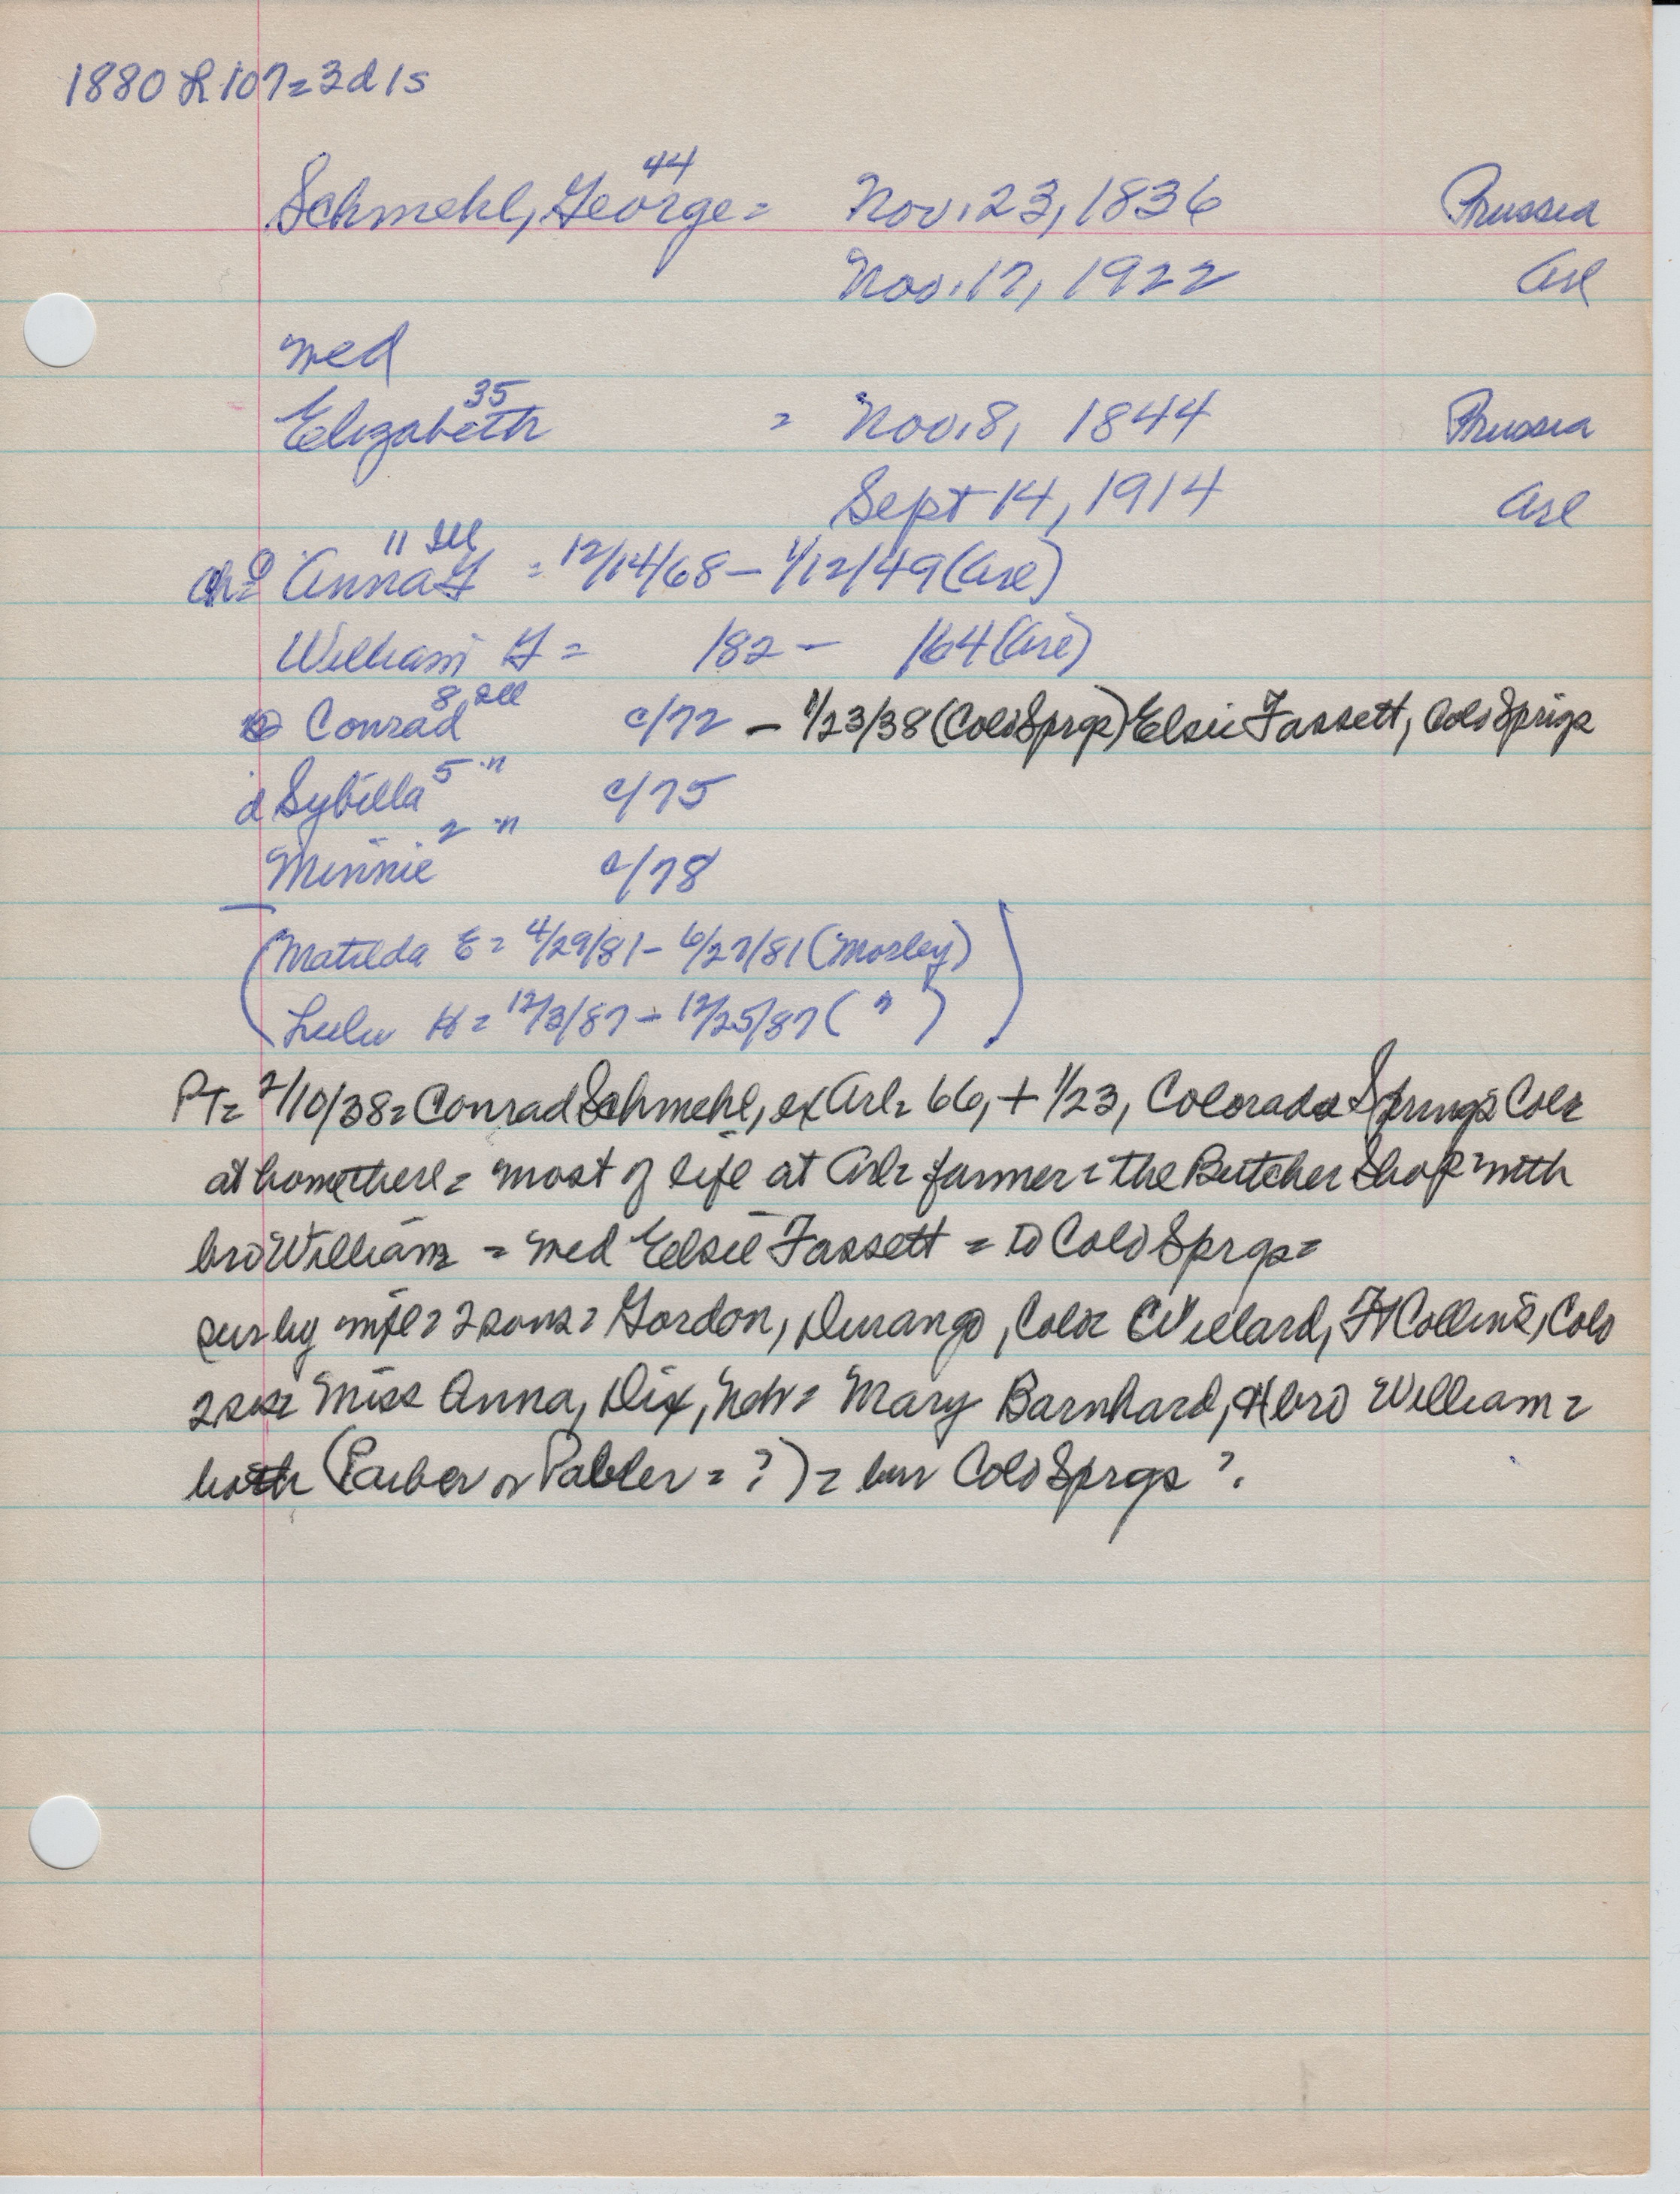 1880 L 107 = 3d 1s
44
Schmehl, George = Nov. 23, 1836 Prussia
Nov. 17, 1922 Arl
med
35
Elizabeth = Nov. 8, 1844 Prussia
Sept 14, 1914 Arl
11 Ill
ch = Anna = 12/14/68 – 1/12/49 (Arl)
William = 182 – 164 (Arl)
8 Ill
Conrad c/72 – 1/23/38 (ColoSprgs) Elsie Fassett, ColoSprigs
5 "
d Sybilla c/75
2 "
Minnie c/78
(Matilda E = 4/29/81 – 6/27/81 (Mosley)
Lulu H = 12/3/87 – 12/25/87 ( " ) )
PT = 2/10/38 = Conrad Schmehl, ex Arl = 66, + 1/23, Colorado Springs Colo
at home there = most of life at Arl = farmer = the Butcher Shop with
bro William = med Elsie Fassett = to ColoSprgs =
sur by wife = 2 sons = Gordon, Durango, Colo Willard, Ft Collins, Colo
2 sis = Miss Anna, Dix, Neb = Mary Barnhard, bro William =
both ( or = ?) = bur ColoSprgs ?